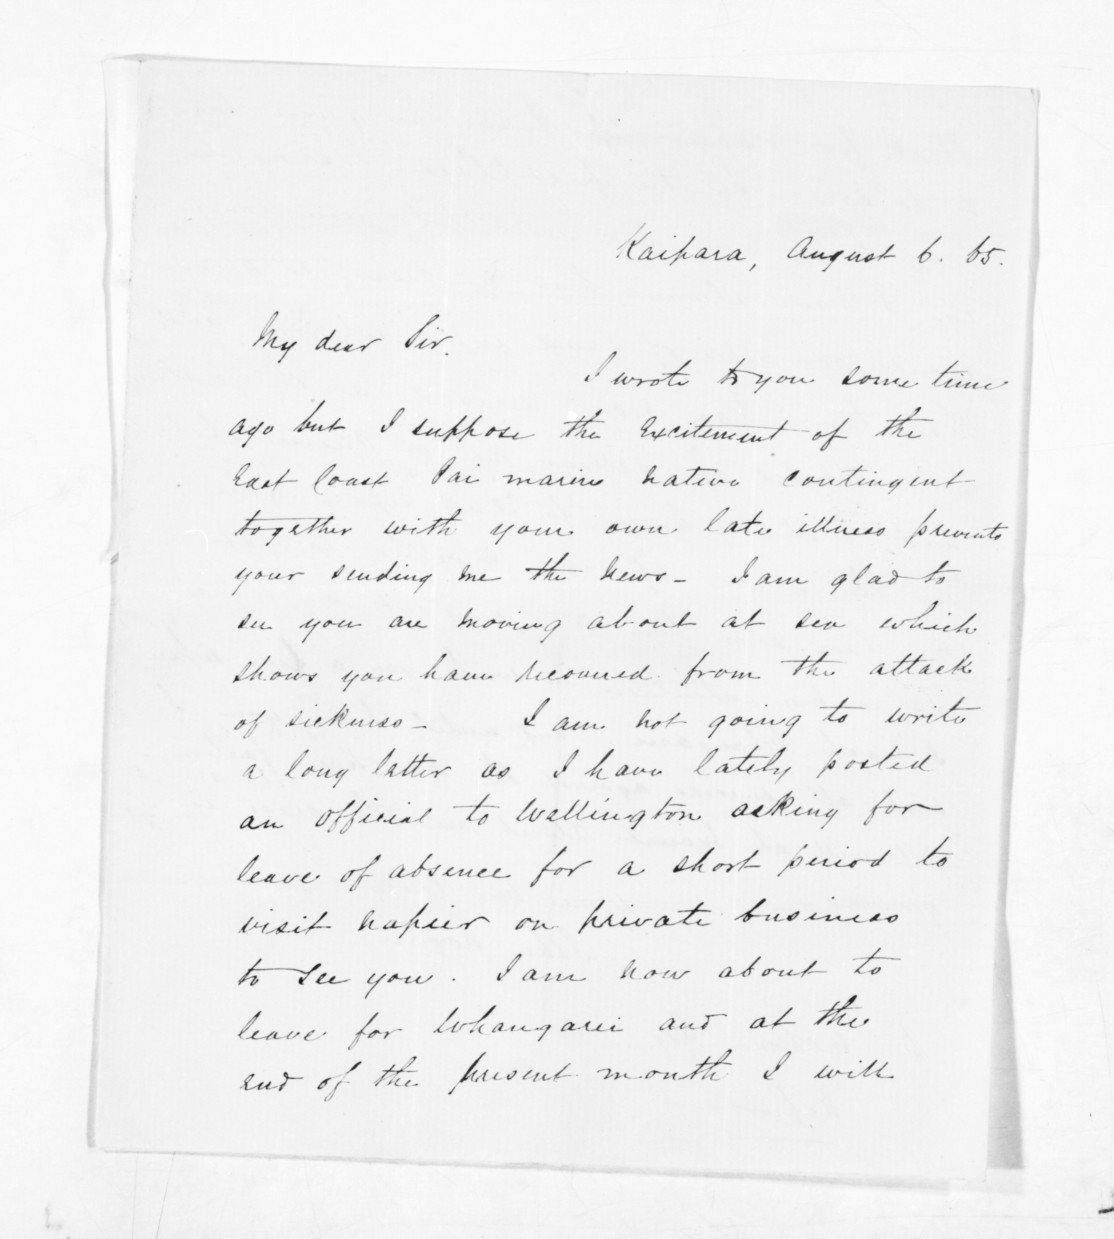 Kaipara, August 6. 65.
My dear Sir.
I wrote to you some time
ago but I suppose the Excitement of the
East Coast Pai marire native contingent
together with your own late illness prevents
your sending me the news - I am glad to
see you are moving about at sea which
shows you have recovered from the attack
of sickness - I am not going to write
a long letter as I have lately posted
an official to Wellington asking for
leave of absence for a short period to
visit Napier on private business
to see you. I am now about to
leave for Whangarei and at the
end of the present month I will